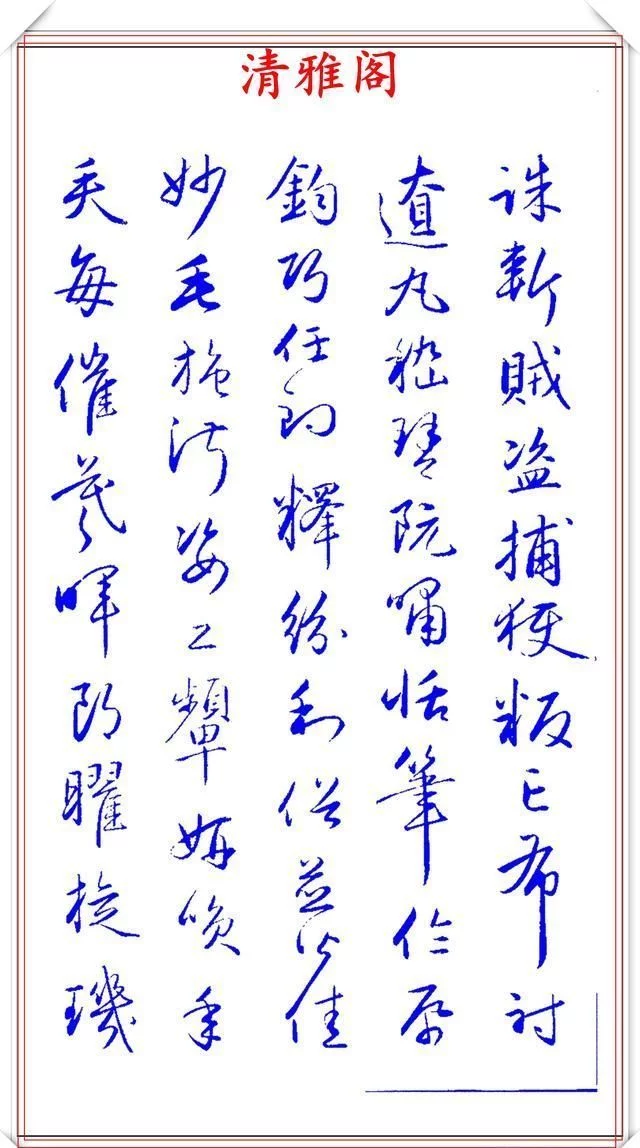 清雅阁
誅斬賊盗捕獲叛亡布射
遼丸嵇琴阮嘯恬筆倫紙
鈞巧任釣釋紛利俗並皆佳
妙毛施淑姿工顰妍笑年
矢每催羲暉朗曜旋璣